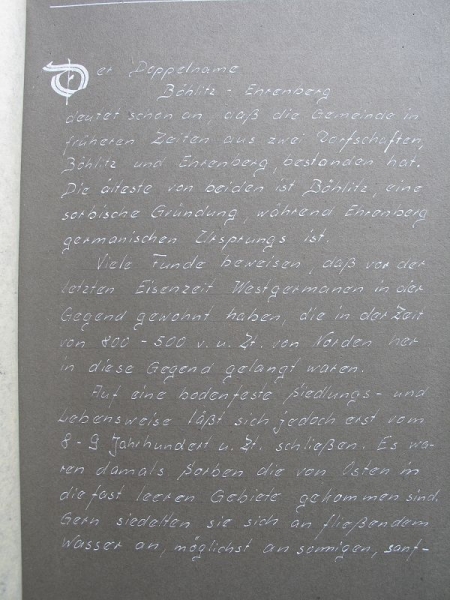 Der Doppelname
Böhlitz - Ehrenberg
deutet schon an, daß die Gemeinde in
früheren Zeiten aus zwei Dorfschaften,
Böhlitz und Ehrenberg, bestanden hat.
Die älteste von beiden ist Böhlitz, eine
sorbische Gründung, während Ehrenberg
germanischen Ursprungs ist.
Viele Funde beweisen, daß vor der
letzten Eisenzeit Westgermanen in der
Gegend gewohnt haben, die in der Zeit
von 800 - 500 v. u. Zt. von Norden her
in diese Gegend gelangt waren.
Auf eine bodenfeste Siedlungs- und
Lebensweise läßt sich jedoch erst vom
8 - 9 Jahrhundert u. Zt. schließen. Es wa-
ren damals Sorben die von Osten in
die fast leeren Gebiete gekommen sind.
Gern siedelten sie sich an fließendem
Wasser an, möglichst an sonnigen, sanf-